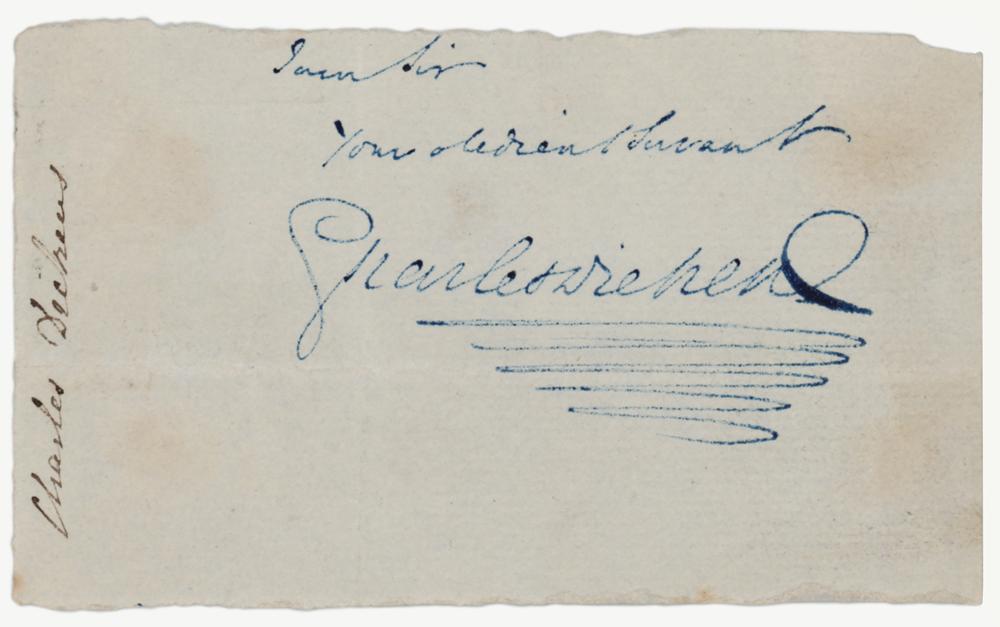 I am Sir
Your obedient Servant
Charles Dickens
Charles Dickens